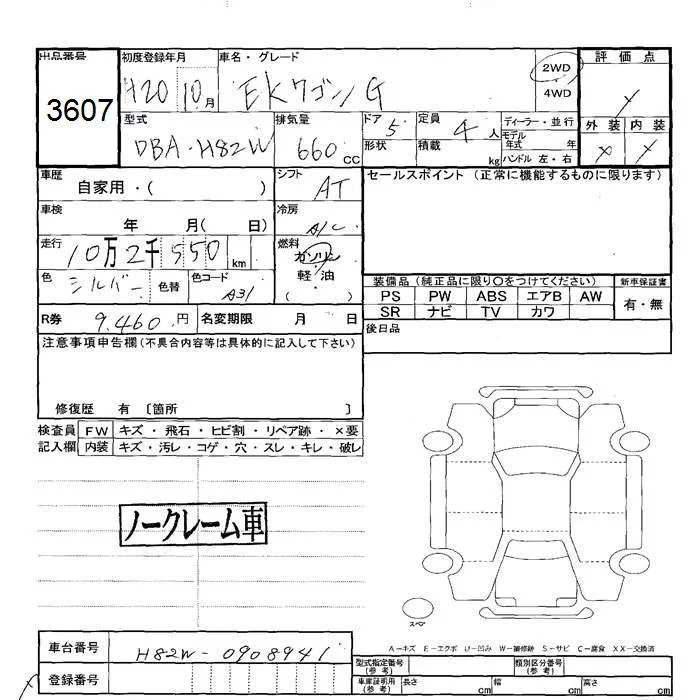 出品番号 初度登録年月 車名・グレード 2WD 評価点
3607 H20 10月 EKワゴン G 4WD
型式 排気量 ドア 5 定員 4人 ディーラー・並行 外装 内装
DBA-H82W 660cc 形状 積載 kg モデル年式 年 ハンドル 左・右
車歴 自家用・( ) シフト AT セールスポイント (正常に機能するものに限ります)
車検 年 月( 日) 冷房 A/C
走行 10万2千550km 燃料 ガソリン
色 シルバー 色替 色コード A31 軽・油 ( )
装備品 (純正品に限り○をつけてください) 新車保証書
PS PW ABS エアB AW 有・無
SR ナビ TV カワ
R券 9.460円 名変期限 月 日 後日品
注意事項申告欄(不具合内容等は具体的に記入して下さい)
修復歴 有 〔箇所 〕
検査員 FW キズ・飛石・ヒビ割・リペア跡・×要
記入欄 内装 キズ・汚レ・コゲ・穴・スレ・キレ・破レ
ノークレーム車
スペア
A-キズ E-エクボ U-凹み W-補修跡 S-サビ C-腐食 XX-交換済
車台番号 H82W-0908941 型式指定番号(参考) 類別区分番号(参考)
登録番号 車庫証明用(参考) 長さ cm 幅 cm 高さ cm